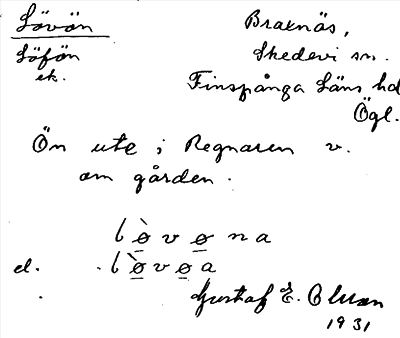 Lövön
Löfön
ek.
Braknäs,
Skedevi sn.
Finspånga Läns hd
Ögl.
Ön ute i Regnaren v.
om gården.
lø̀vøna
el. lø̀vøa
Gustaf E. Olson
1931